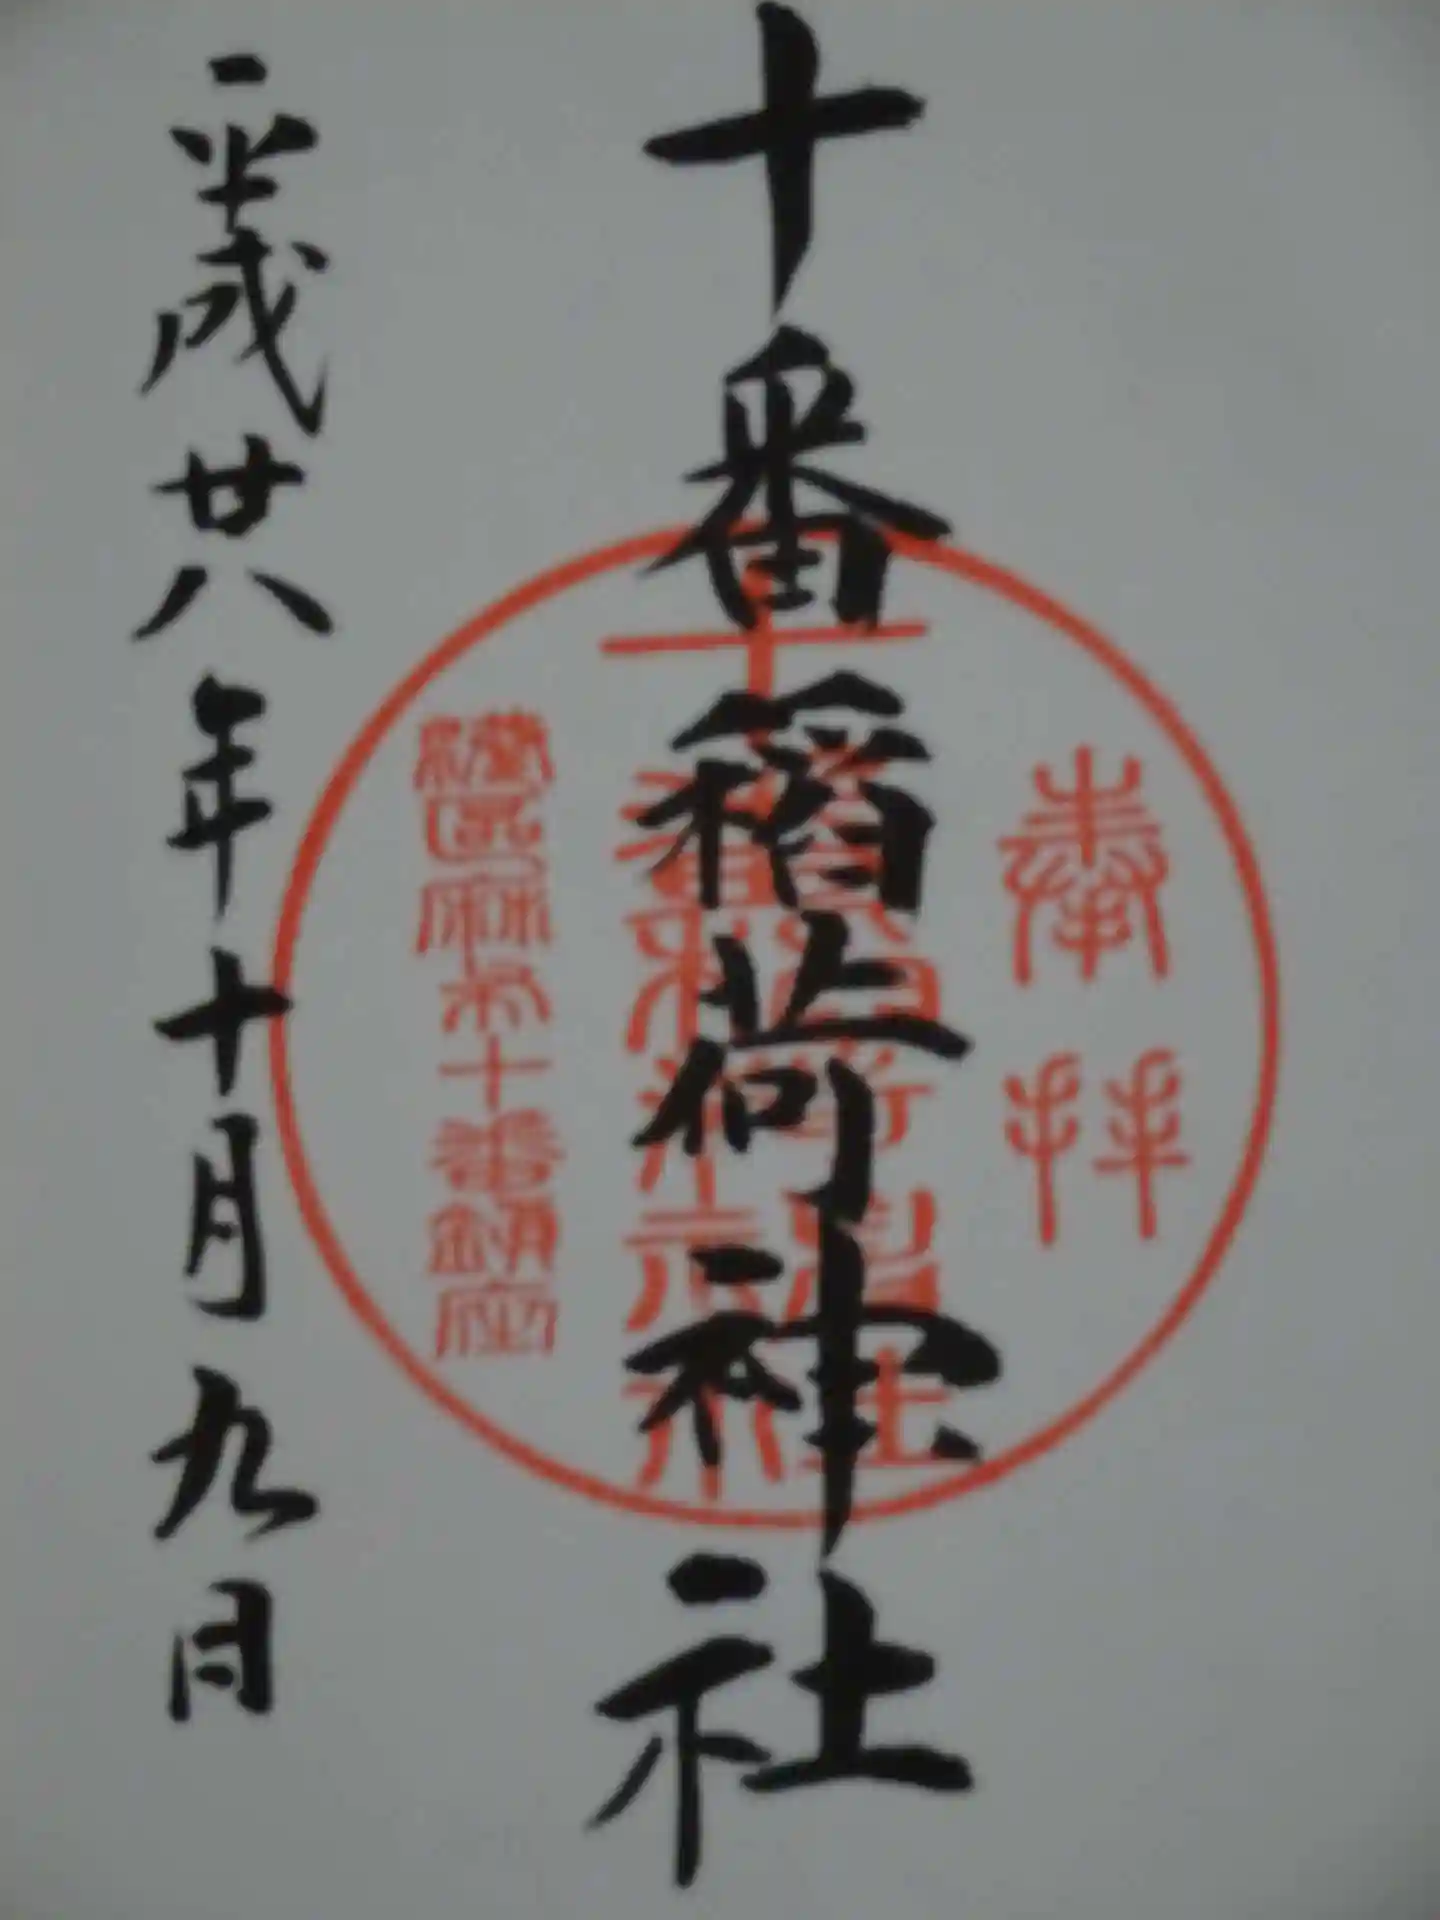 奉拝
十番稲荷神社
十番稲荷神社
港区麻布十番鎮座
平成廿八年十月九日